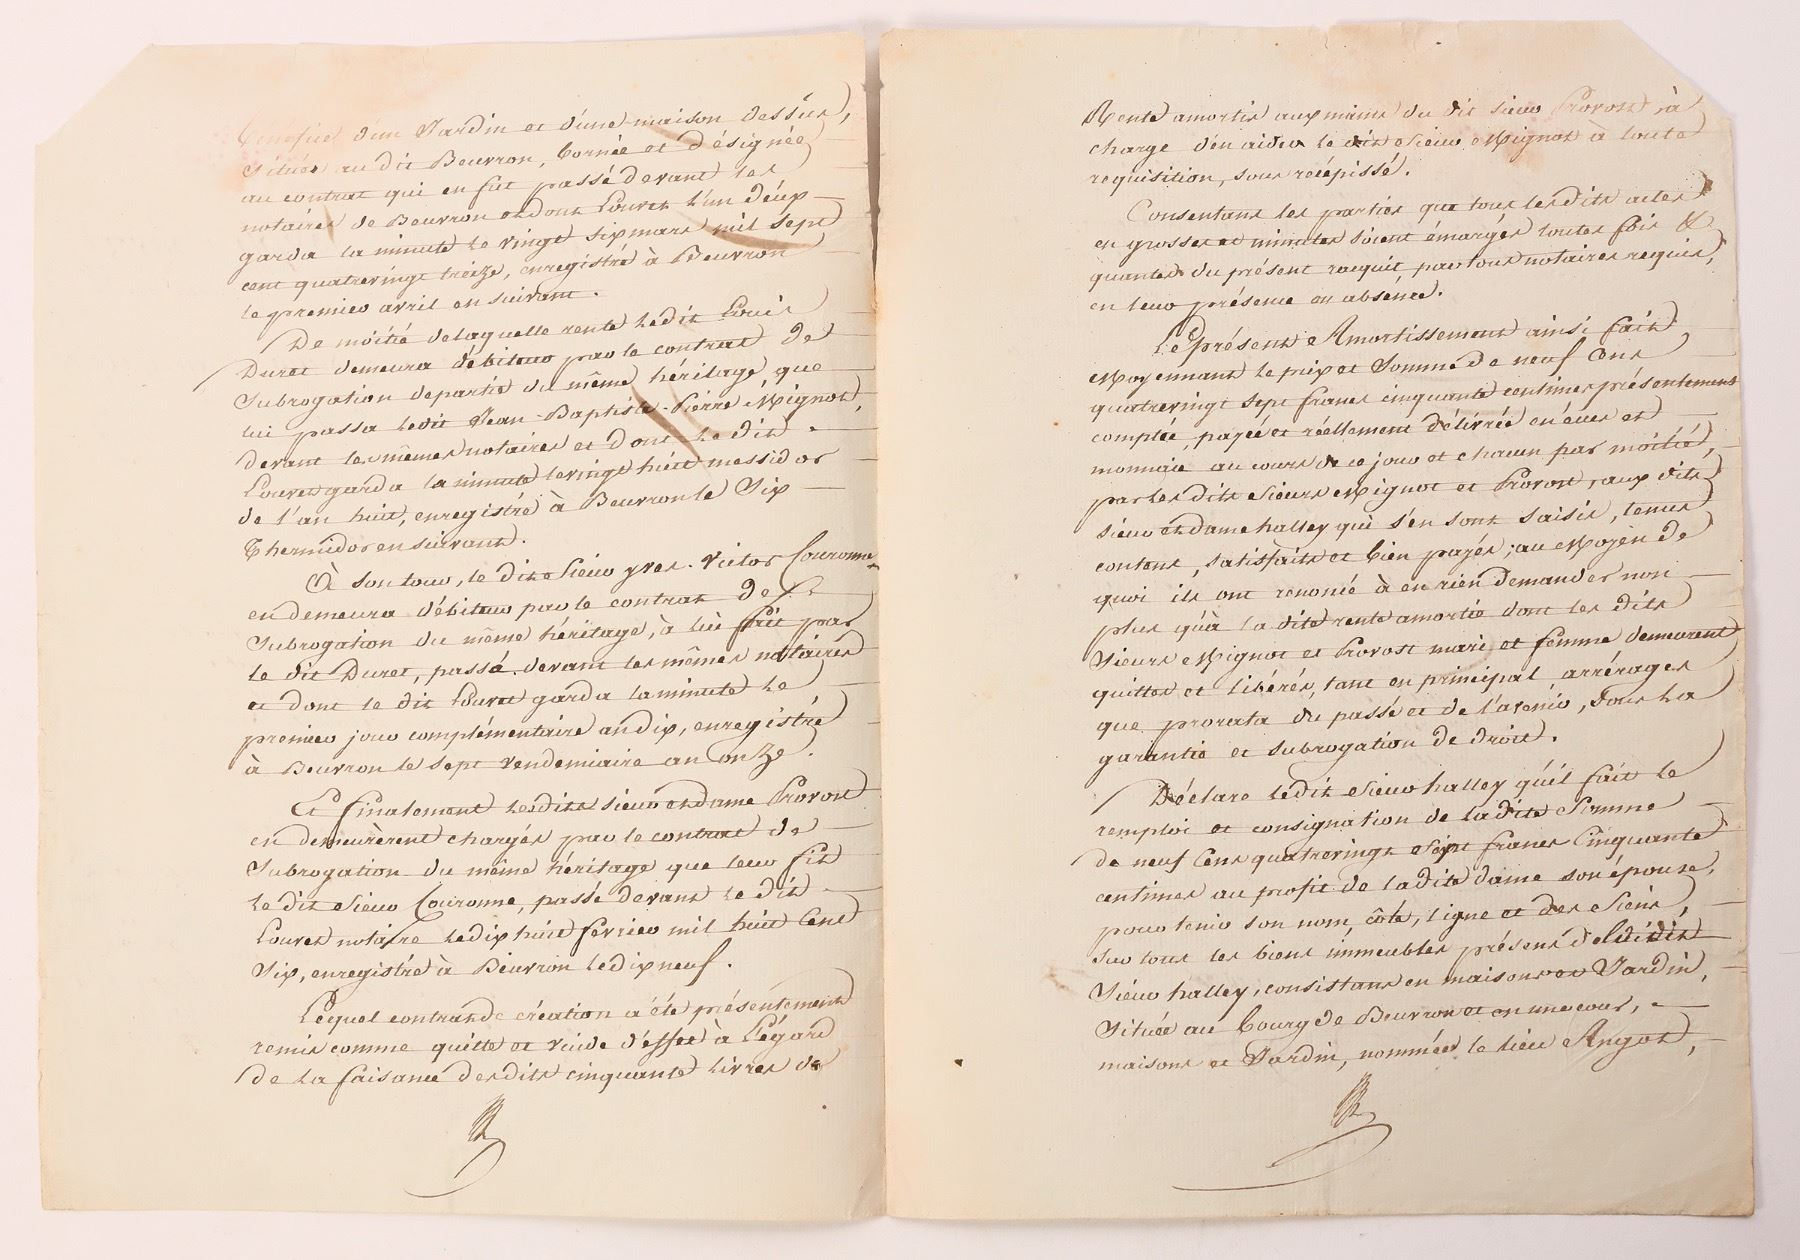 Benefice d'un Jardin et d'une maison dessus,
situés au dit Beuvron, bornée et désignée
au contrat qui en fut passé devant les
notaires de Beuvron et dont Louvet l'un d'éux
garda la minute le vingt six mars mil sept
cent quatrevingt treize, enregistré à Beuvron
le premier avril en suivant.
De moitié delaquelle rente ledit Louis
Duret demeura débiteur par le contrat de
Subrogation departie du même héritage que
lui passa ledit Jean-Baptiste-Pierre Mignot,
devant les mêmes notaires et dont le dit
Louvet garda la minute le vingt huit messidor
de l'an huit, enregistré à Beuvron le Six
Thermidor en suivant.
À son tour, le dit Sieur yves-victor Couronne
en demeura débiteur par le contrat de
Subrogation du même héritage, à lui fait par
le dit Duret, passé devant les mêmes notaires
et dont le dit Louvet garda la minute le
premier jour complémentaire an dix, enregistré
à Beuvron le sept vendemiaire an onze.
Et finalement lesdits sieur et dame Provost
en demeurèrent chargés par le contrat de
Subrogation du même héritage que leur fit
le dit Sieur Couronne, passé devant le dit
Louvet notaire le dix huit février mil huit Cent
Six, enregistré à Beuvron le dix neuf.
Lequel contrat de création a été présentement
remis comme quitte et vuide d'effet à l'égard
de la faisance desdits cinquante livres de
Rente amortis aux mains du dit sieur Provost, à
charge d'en aider le dit Sieur Mignot à toute
requisition, sous récépissé.
Consentant les parties que tous lesdits actes
en grosses et minutes soient émargés toutes fois &
quantes du présent racquit par tous notaires requis,
en leur présence ou absénce.
Le présent Amortissement ainsi fait
Moyennant le prix et Somme de neuf Cent
quatrevingt sept francs cinquante centimes présentement
comptée, payée et réellement délivrée en écus et
monnaie au cours de ce jour et chacun par moitié,
par les dits Sieurs Mignot et Provost, aux dits
sieur et dame halley qui s'en sont saisis, tenus
contens, satisfaits et bien payés; au Moyèn de
quoi ils ont renoncé à en rien demander non
plus qu'à la dite rente amortie dont les dits
Sieurs Mignot et Provost mari et femme demeurent
quittes et libérés, tant en principal arrérages
que prorata du passé et de l'avenir, sous la
garantie et subrogation de droit.
Déclare ledit Sieur halley qu'il fait le
remploi et consignation de ladite Somme
de neuf Cent quatrevingt Sept francs Cinquante
centimes au profit de ladite dame son épouse,
pour tenir son nom, côté, ligne et des Siens,
sur tous les biens immeubles présens de lui dit
Siéur halley, consistant en maisons et Jardin,
située au bourg de Beuvron et en une cour,
maisons et Jardin, nommées le lieu Angot,